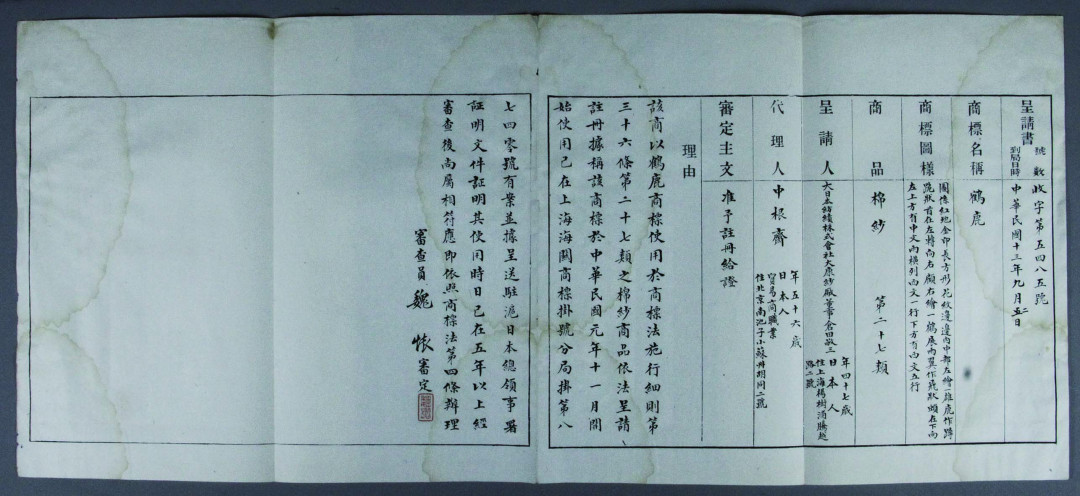 呈請書 號數 收字第五四八五號
到局日時 中華民國十三年九月五日
商標名稱 鶴鹿
商標圖樣 圖係紅地金印長方形花紋邊邊內中部左繪一雄鹿作蹲
踞狀首在左轉向右顧右繪一鶴展兩翼作飛狀頭在下向
左上方有中文兩橫列西文一行下方有西文五行
商品 棉紗 第二十七類
呈請人 大日本紡績株式會社大康紗廠董事倉田敬三 年四十七歲
日本人
住上海楊樹浦騰越
路二號
代理人 中根齋 年五十六歲
日本人
貿易商職業
住北京南池子小蘇州胡同二號
審定主文 准予註冊給證
理由
該商以鶴鹿商標使用於商標法施行細則第
三十六條第二十七類之棉紗商品依法呈請
註冊據稱該商標於中華民國元年十一月開
始使用已在上海海關商標掛號分局掛第八
七四零號有案並據呈送駐滬日本總領事署
証明文件証明其使用時日已在五年以上經
審查後尚屬相符應即依照商標法第四條辦理
審查員 魏 審定